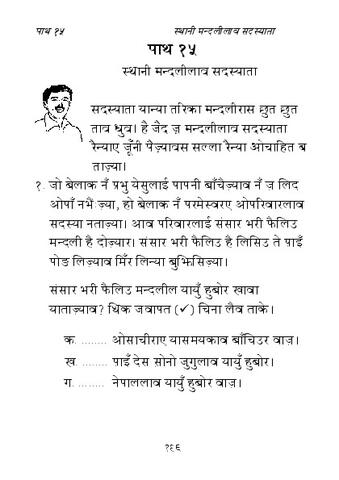 पाथ १५ स्थानी मन्दलीलाव सदस्याता
पाथ १५
स्थानी मन्दलीलाव सदस्याता
सदस्याता यान्या तरिका मन्दलीरास छुत छुत
ताव धुव। है जैद ज़ मन्दलीलाव सदस्याता
रैन्याए जूँनी पैज़्यावस सल्ला रैन्या ओचाहित ब
ताज़्या।
१. जो बेलाक नँ प्रभु येसुलाई पापनी बाँचैज़्याव नँ ज़ लिद
ओपाँ नभैःज़्या, हो बेलाक नँ परमेस्वरए ओपरिवारलाव
सदस्या नताज़्या। आव परिवारलाई संसार भरी फैलिउ
मन्दली है दोज़्यार। संसार भरी फैलिउ है लिसिउ ते पाइँ
पोङ लिज़्याव मिँर लिन्या बुझिसिज़्या।
संसार भरी फैलिउ मन्दलील यायुँ हुबोर खावा
याताज़्याव? थिक जवापत (✓) चिना लैव ताके।
क. ........ ओसाचीराए यासमयकाव बाँचिउर वाज़।
ख. ........ पाइँ देस सोनो जुगुलाव यायुँ हुबोर।
ग. ........ नेपाललाव यायुँ हुबोर वाज़।
१६६